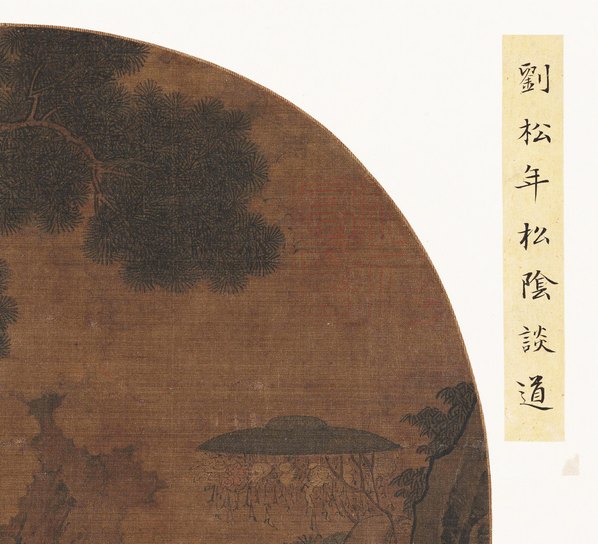 劉松年松陰談道